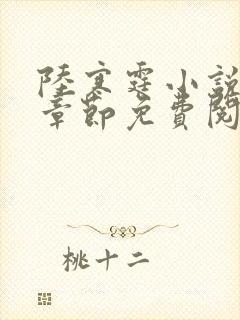 陸寒霆小說
章節免費閱
桃十二